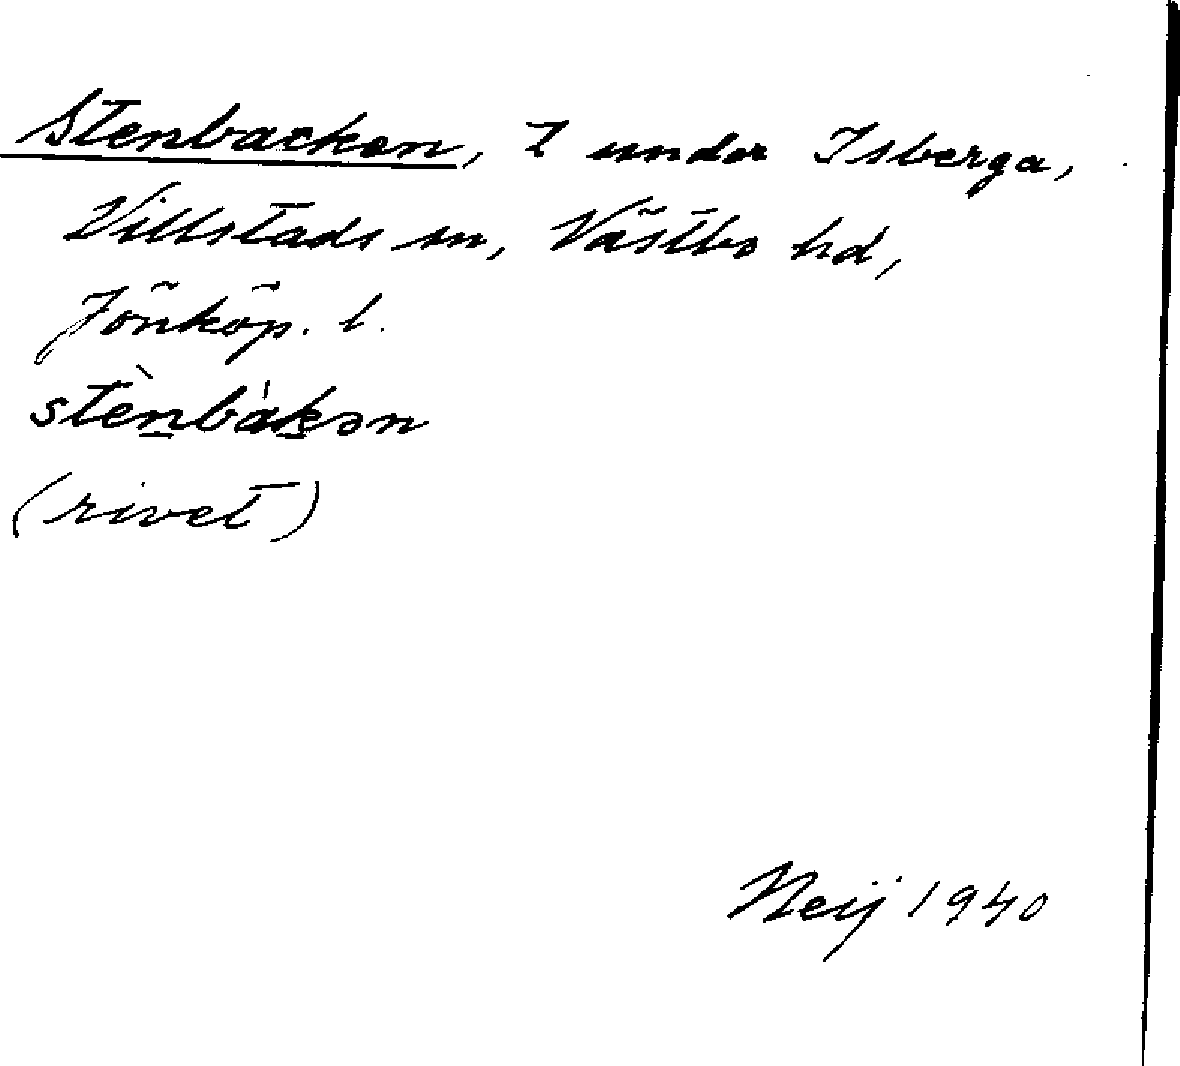 Stenbacken, t under Isberga,
Villstads sn, Västbo hd,
Jönköp. l.
stèn̲bàk̲ən
(rivet)
Neij 1940